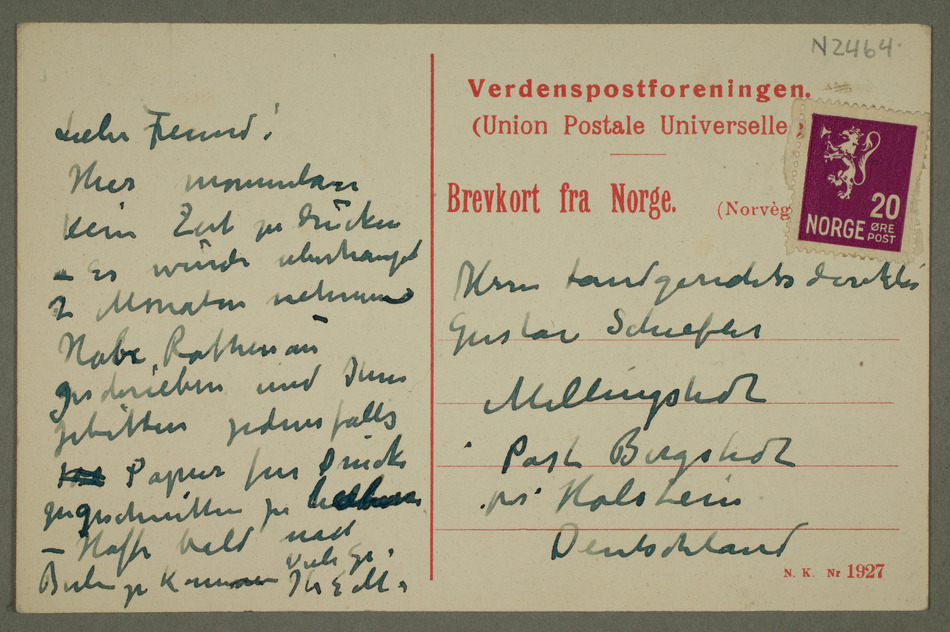 N2464.
Lieber Freund!
Hier momentan
kein Zeit zu drücken
– Es würde überhaupt
2 Monaten nehmen
Habe Rathenau
geschrieben und Ihm
gebitten jedensfalls
Papier für Drucke
zugeschnitten zu
– Hoffe bald nach
Berlin zu kommen
Viele Gr.
Ihr E.M.
Verdenspostforeningen.
(Union Postale Universelle.)
Brevkort fra Norge.
(Norvèg
20
NORGE ØRE
POST
Herrn Landgerichtsdirektör
Gustav Schiefler
Mellingstedt
Post Bergstedt
pr. Holstein
Deutschland
N. K. Nr 1927